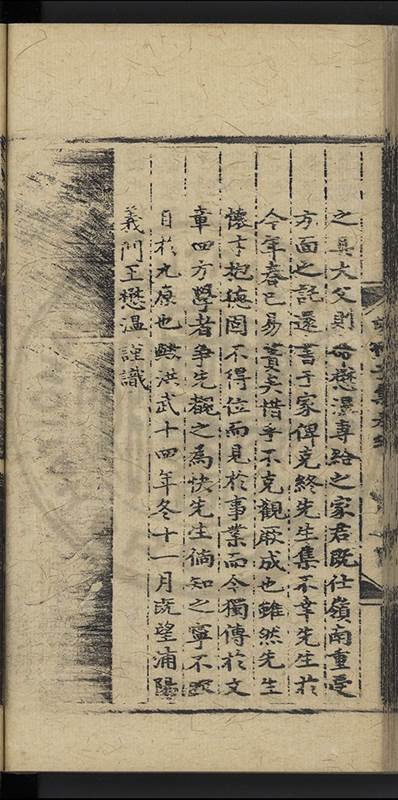 之具大父則命懋溫專給之家君既仕嶺南重受
方面之託還書于家俾克終先生集不幸先生於
今年春已易簀矣惜乎不克觀厥成也雖然先生
懷才抱德固不得位而見於事業而今獨傳於文
章四方學者爭先觀之為快先生倘知之寧不
目於九原也
洪武十四年冬十一月既望浦陽
義門王懋溫謹識